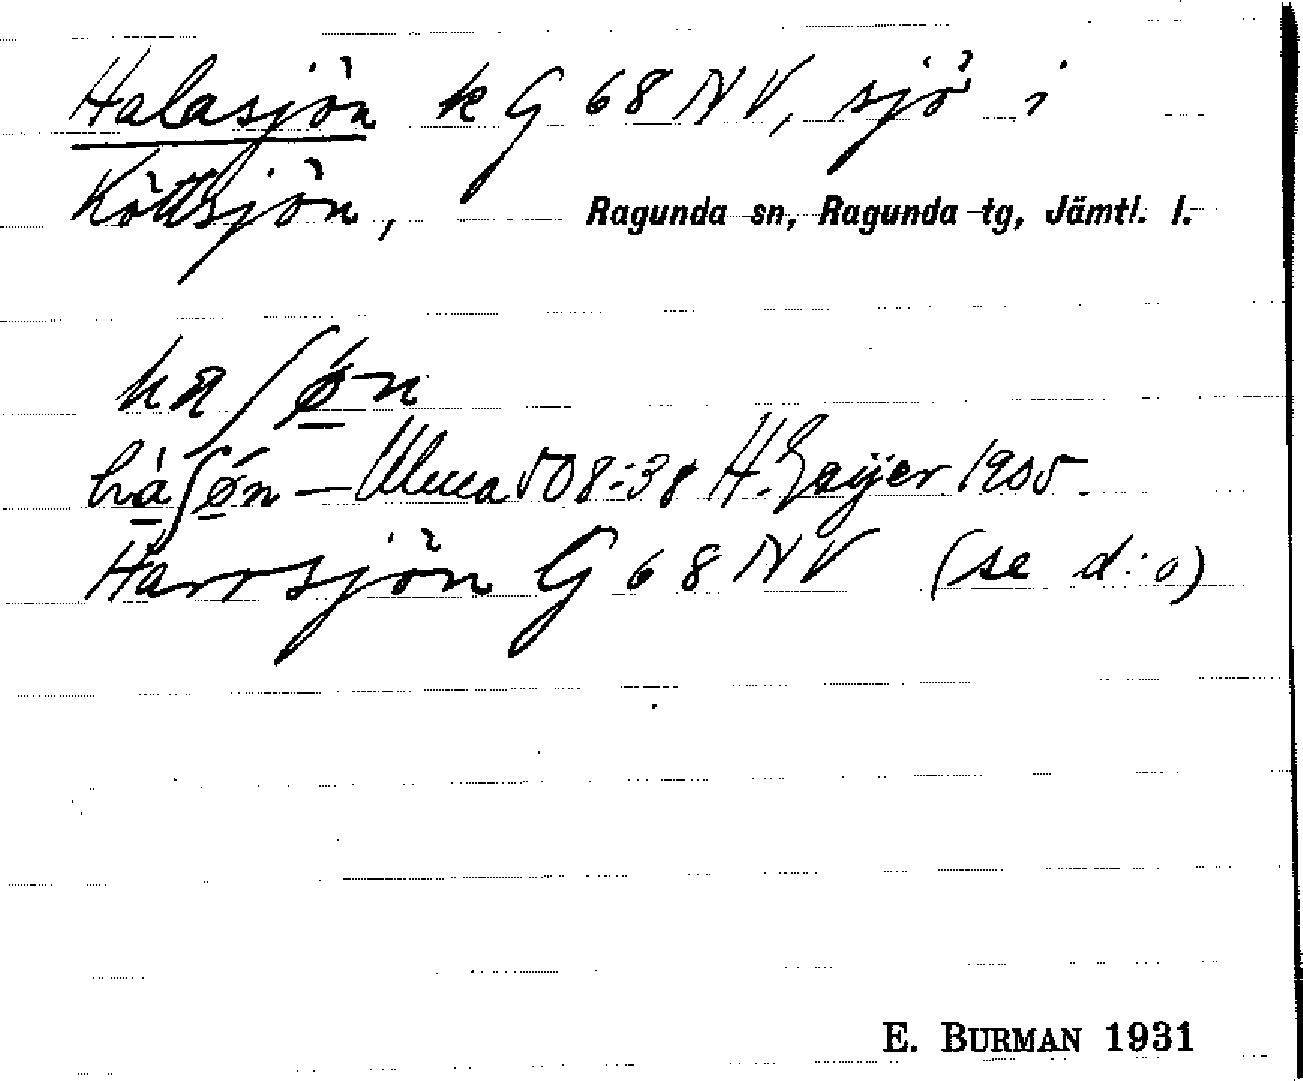 Halasjön k G 68 NV, sjö i
Köttsjön, Ragunda sn, Ragunda tg, Jämtl. l.
haʃøn
hàʃøn – Ulma 508:38 H. Geijer 1905.
Harrsjön G 68 NV (se d:o)
E. BURMAN 1931